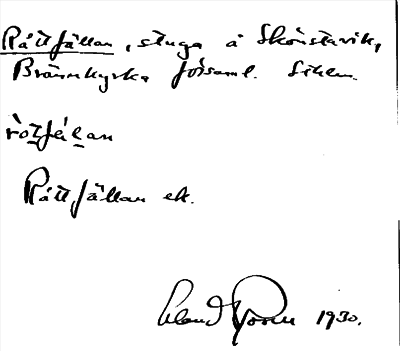 Råttfällan, stuga å Skönstavik,
Brännkyrka församl. Sthlm.
ròtfälan
Råttfällan ek.
1930.